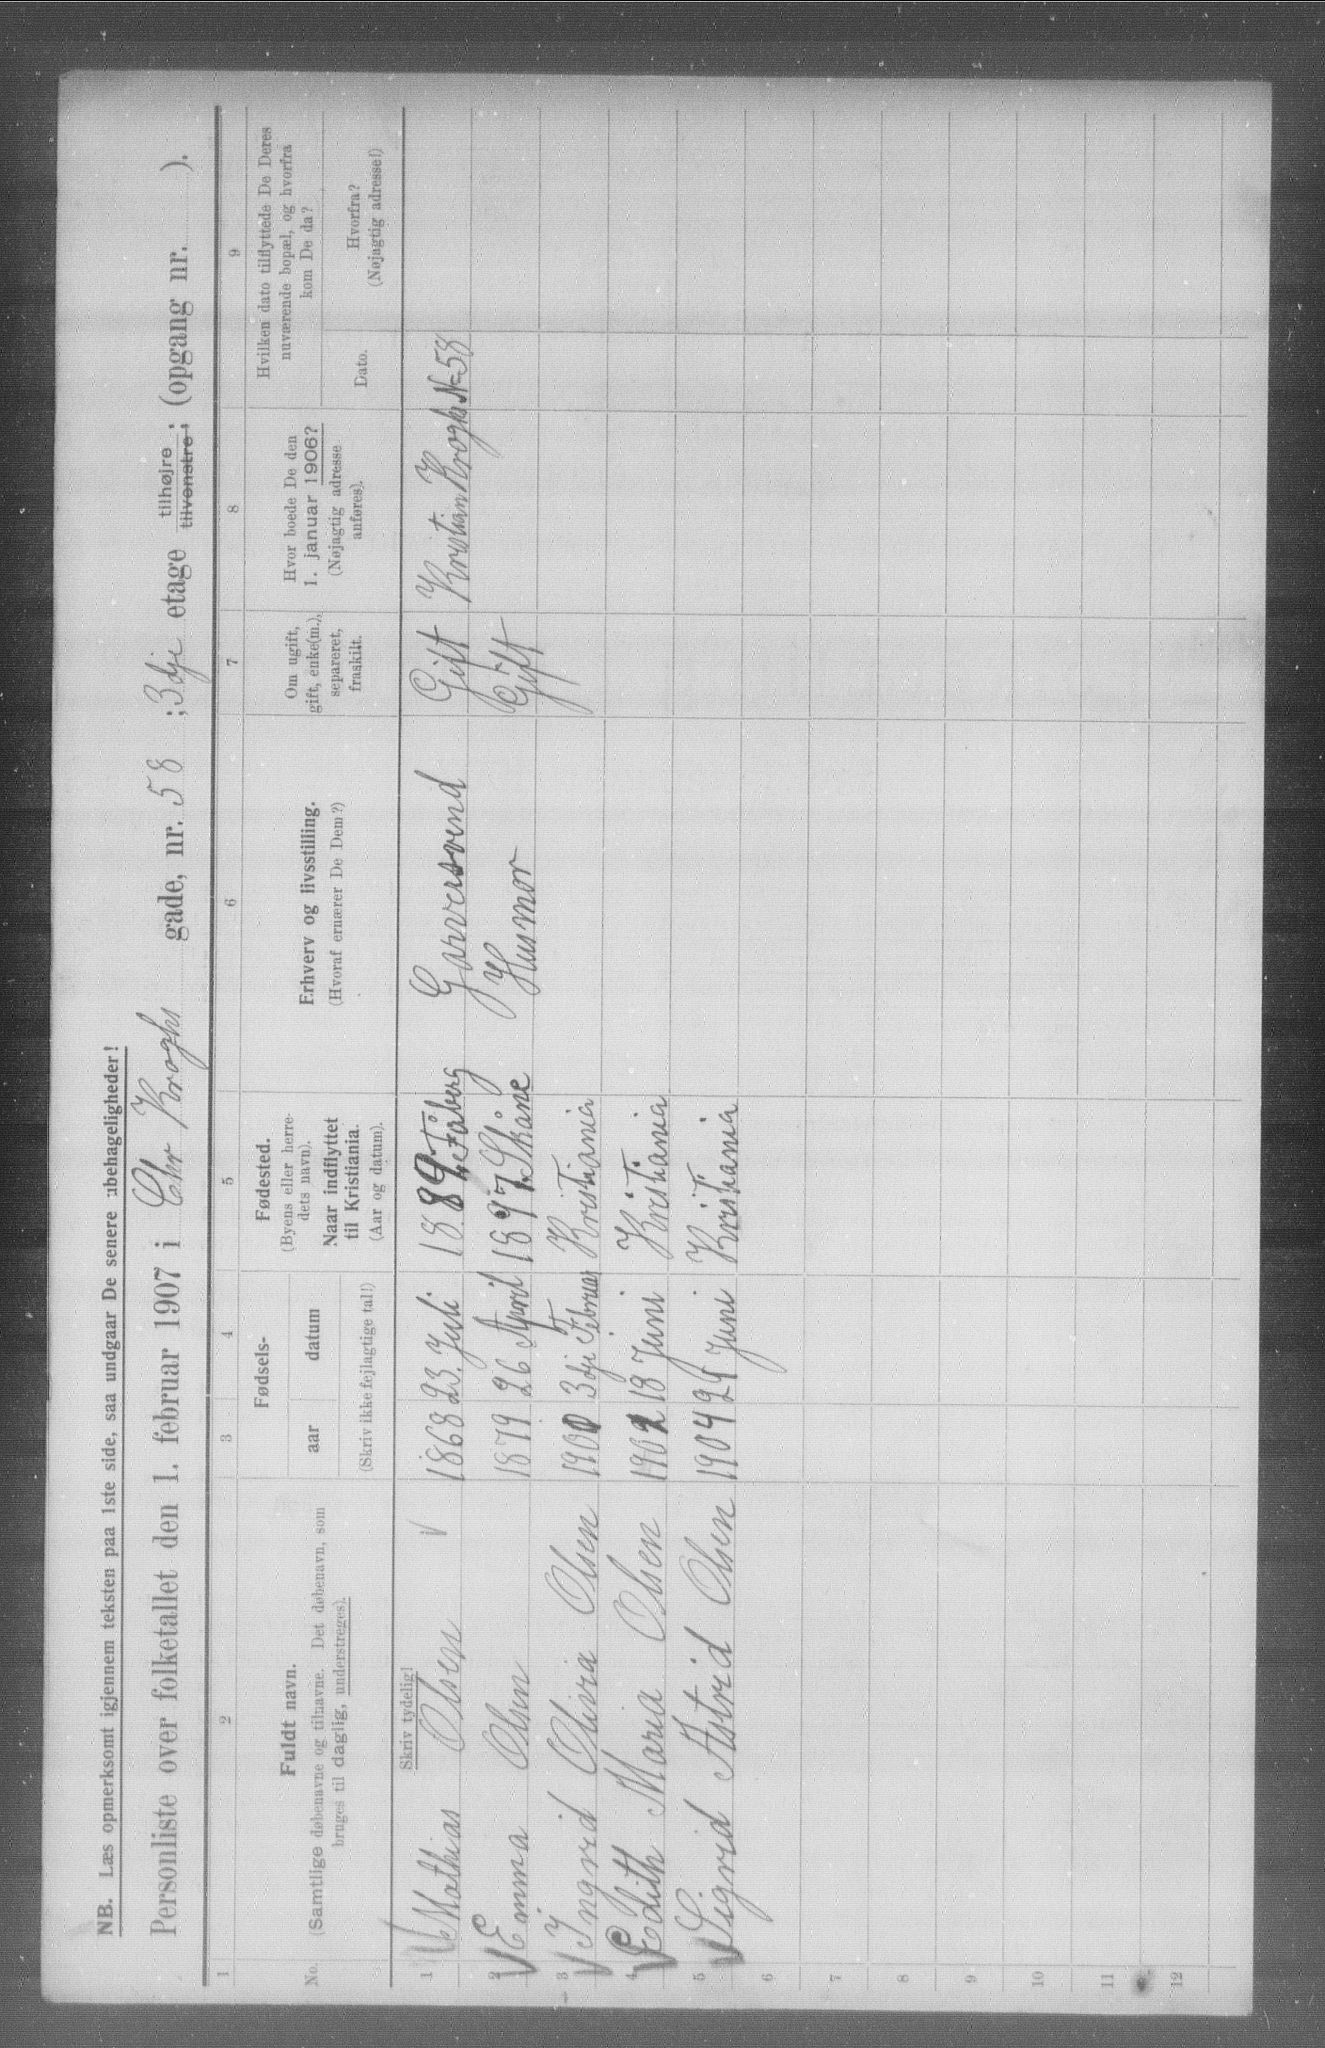 NB. Læs opmerksomt igjennem teksten paa 1ste side, saa undgaar De senere ubehageligheder!
Personliste over folketallet den 1. februar 1907 i Chr Kroghs gade, nr. 58 ; 3dje etage tilhøjre, tilvenstre; (opgang nr. ).
1 2 3 4 5 6 7 8 9
No. Fuldt navn. (Samtlige døbenavne og tilnavne. Det døbenavn, som bruges til daglig, understreges).
Fødsels- aar datum (Skriv ikke fejlagtige tal!)
Fødested. (Byens eller herredets navn). Naar indflyttet til Kristiania. (Aar og datum).
Erhverv og livsstilling. (Hvoraf ernærer De Dem?)
Om ugift, gift, enke(m.), separeret, fraskilt.
Hvor boede De den 1. januar 1906? (Nøjagtig adresse anføres).
Hvilken dato tilflyttede De Deres nuværende bopæl, og hvorfra kom De da?
Dato. Hvorfra? (Nøjagtig adresse!)
Skriv tydelig!
1 Mathias Olsen 1868 23. Juli 1889 Fåberg Garversvend Gift Kristian Kroghs N 58
2 Emma Olsen 1879 26 April 1897 Skåne Husmor Gift
3 Ingrid Olivia Olsen 1900 3dji Februar Kristiania
4 Edith Maria Olsen 1902 18 Juni Kristiania
5 Sigrid Astrid Olsen 1904 24 Juni Kristiania
6
7
8
9
10
11
12